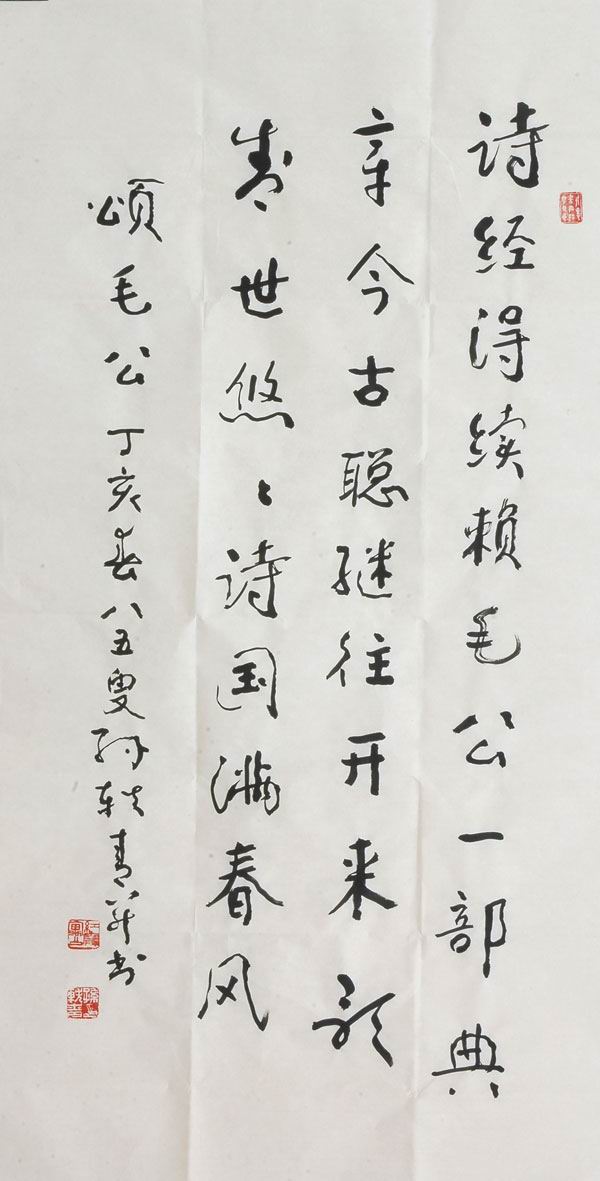 诗经得续赖毛公一部典
章今古聪继往开来歌
盛世悠々诗国满春风
颂毛公 丁亥春八五叟孙轶青并书